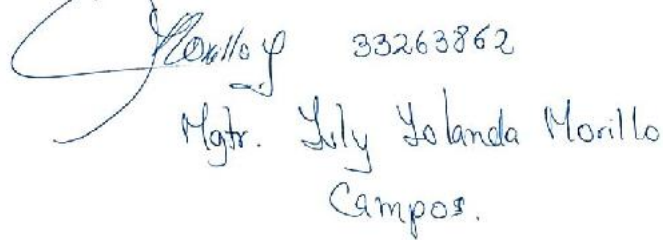 Morillo Y 33263862
Mgtr. July Yolanda Morillo
Campos.